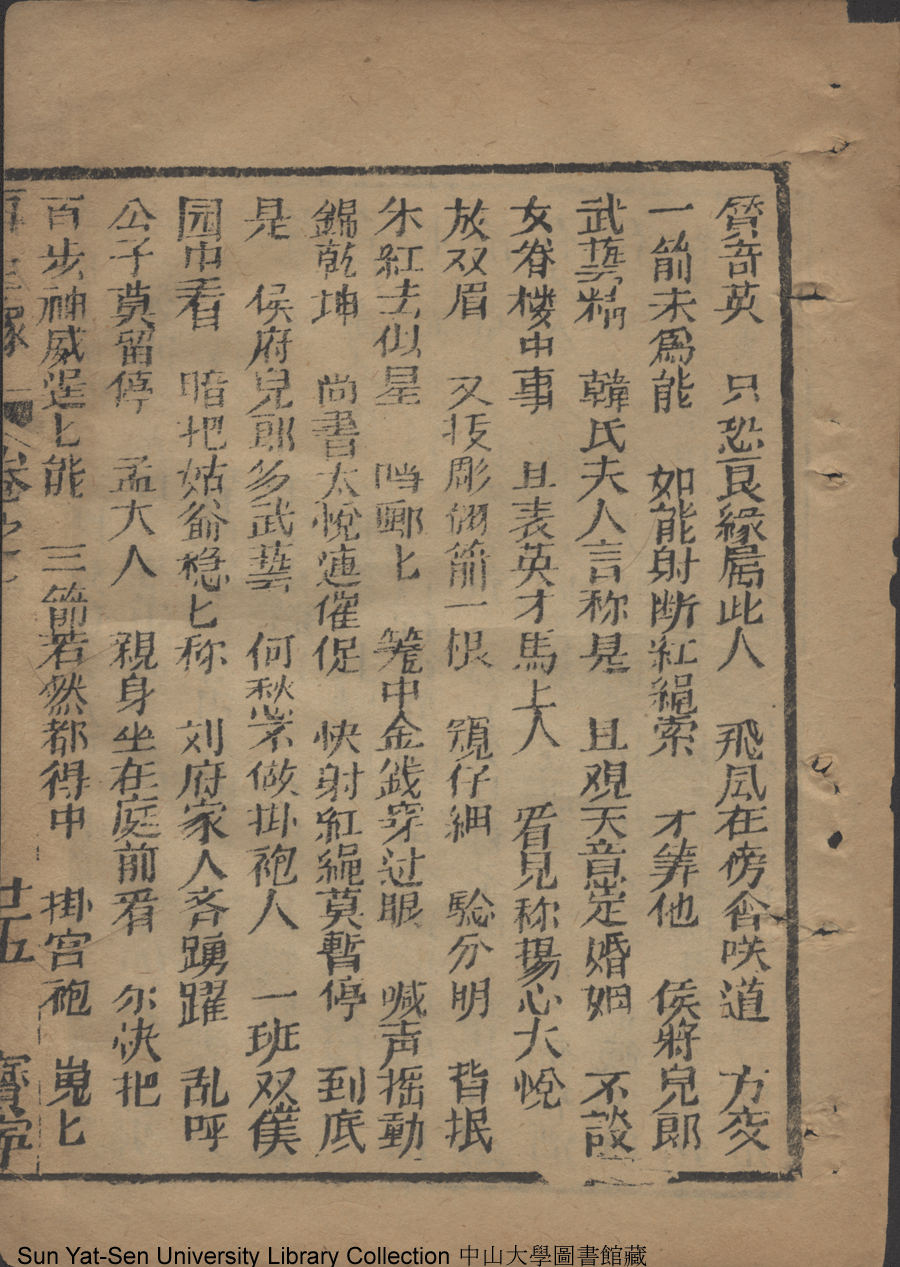 贤奇英　只恐良緣屬此人　飛凤在傍含咲道　方交
一箭未為能　如能射断紅繩索　才筭他　侯將兒郎
武藝精　韓氏夫人言称是　且观天意定婚姻　不談
女眷楼中事　且表英才馬上人　看見称揚心大悅
放双眉　又扳彫翎箭一根　覷仔細　騐分明　背抿
朱紅去似星　鸣啷匕　中金錢穿过眼　喊声摇動
錦乾坤　尚書太悅連催促　快射紅繩莫暫停　到底
是　侯府兒郎多武藝　何愁不做掛袍人　一班双僕
园中看　暗把姑爺稳匕称　刘府家人吝踴躍　乱呼
公子莫留停　孟大人　親身坐在庭前看　尔快把
百步神威逞匕能　三箭若然都得中　掛宫袍　嵬匕
再生缘　卷之　廿五　寶寧
Sun Yat-Sen University Library Collection 中山大學圖書館藏